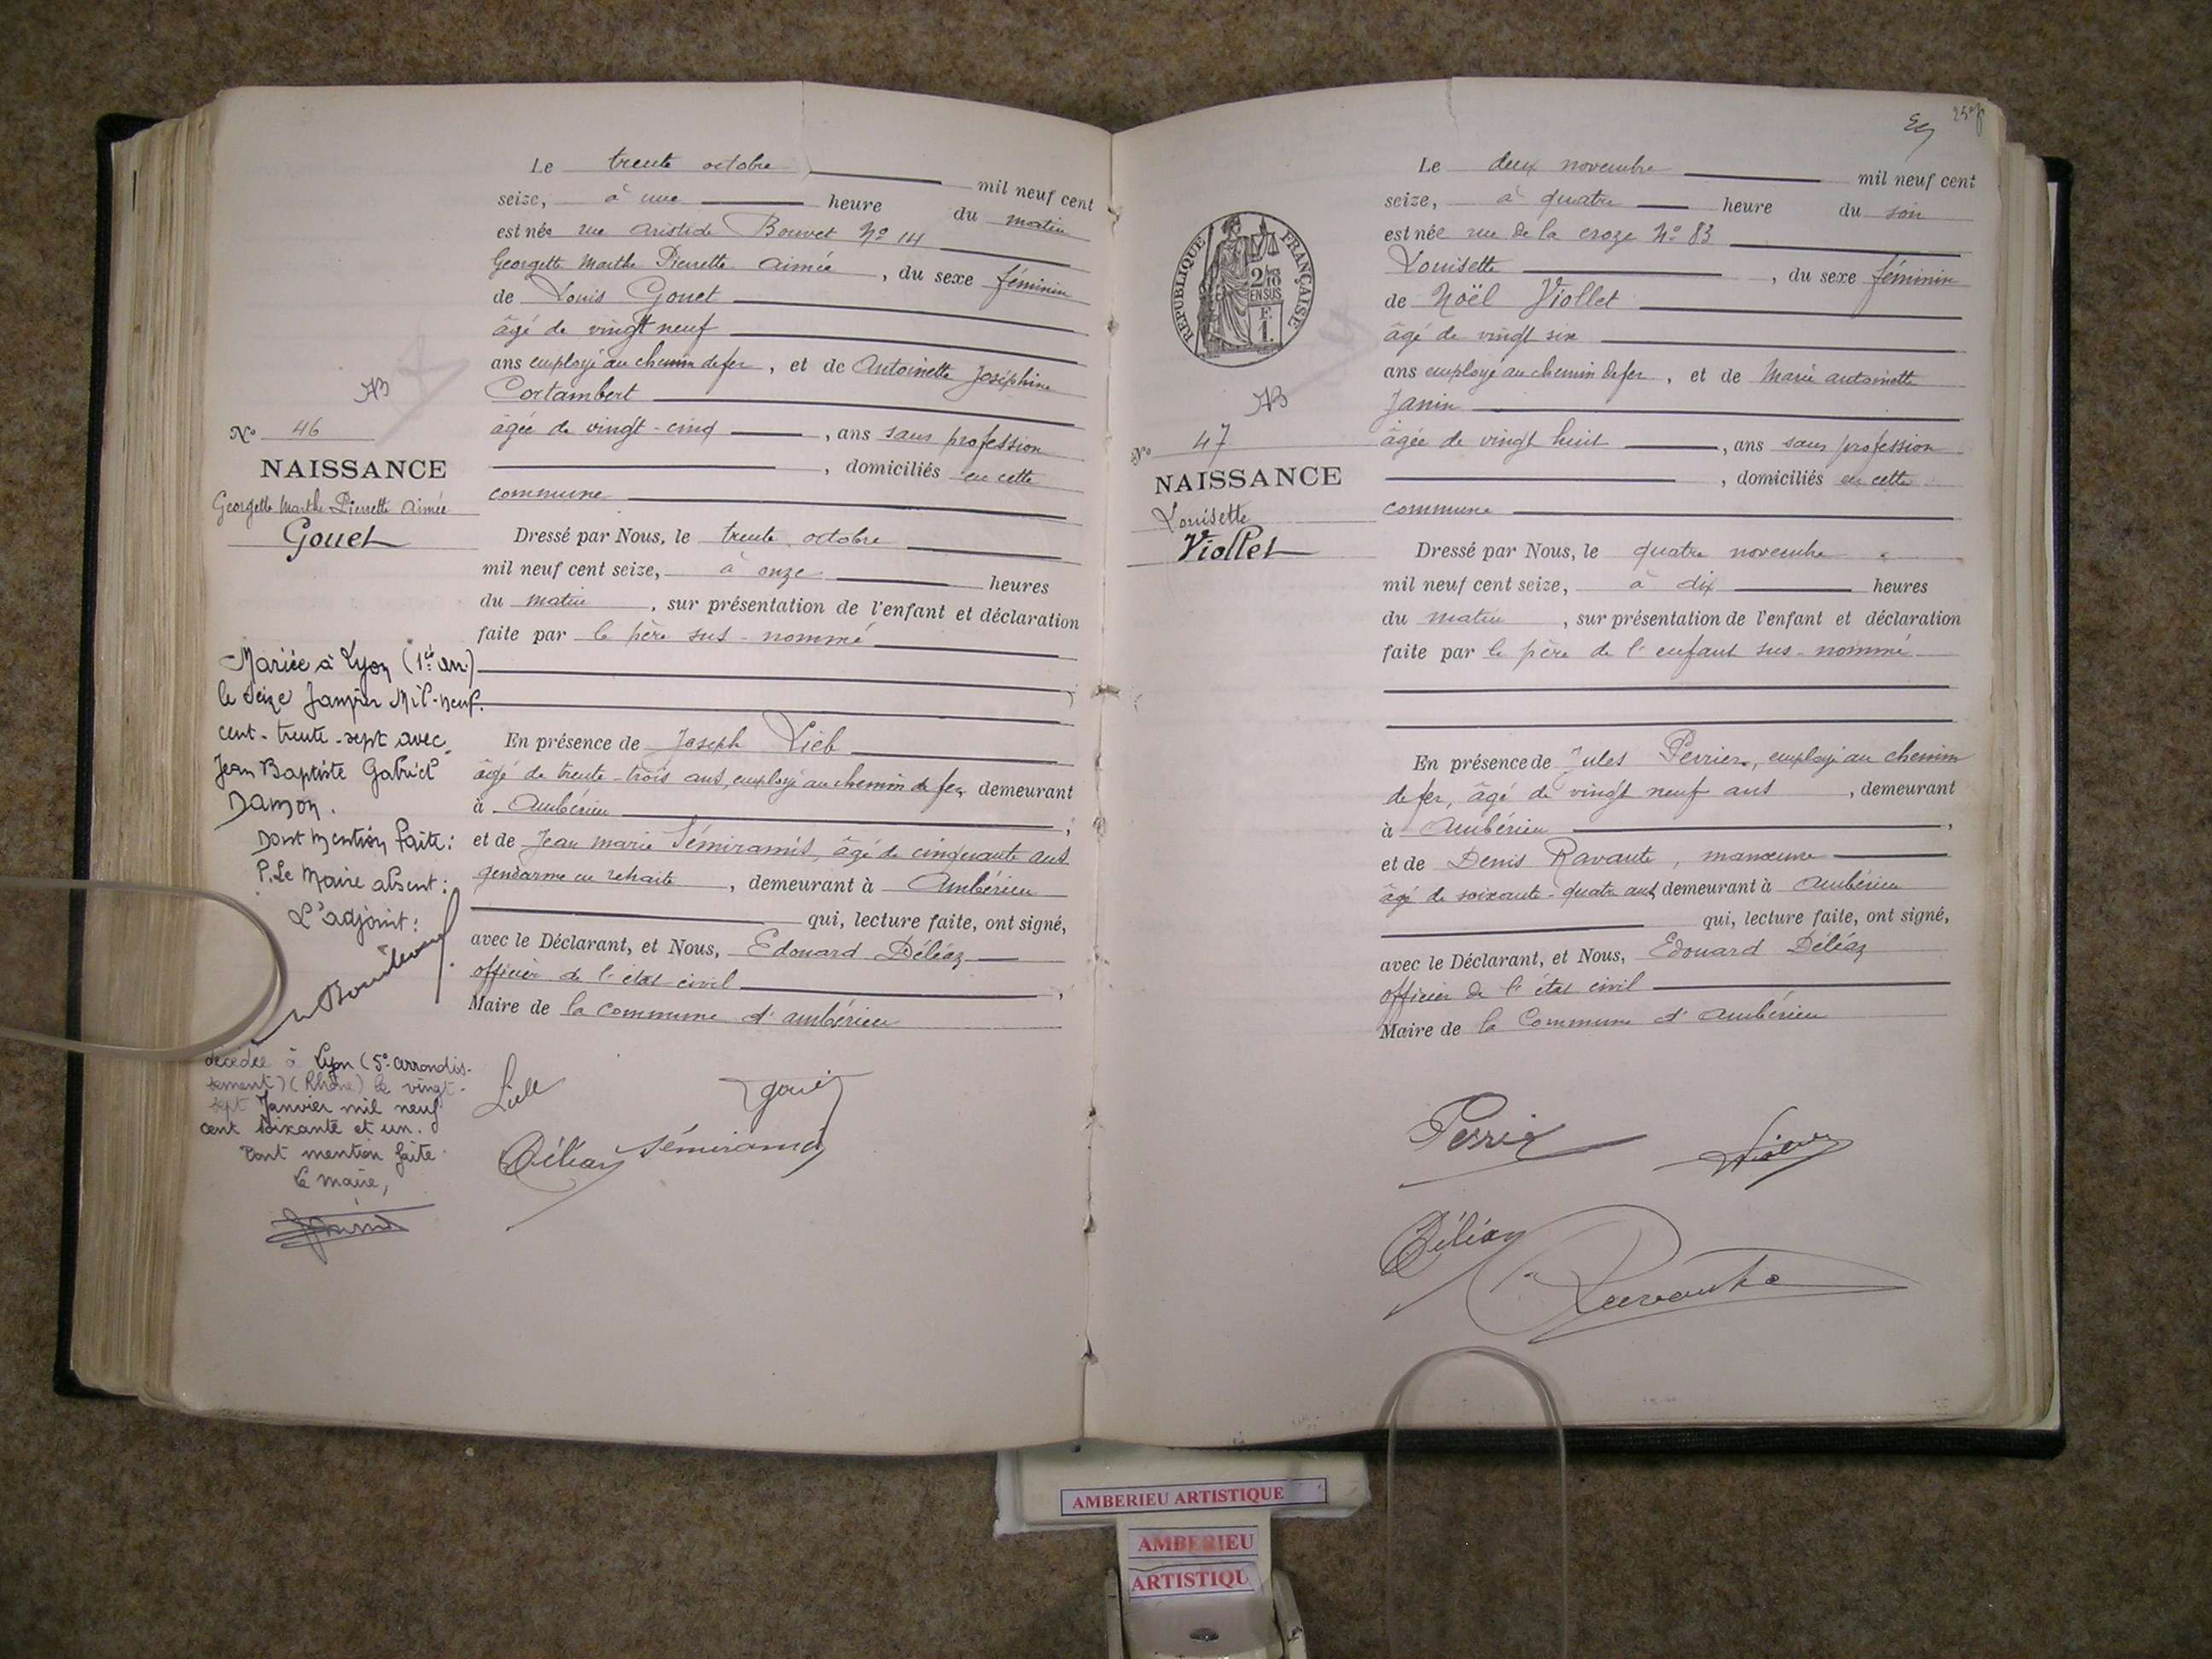 Le trente octobre mil neuf cent
seize, à une heure du matin
est née rue Aristide Bouvet No 14
Georgette Marthe Pierrette Aimée, du sexe féminin
de Louis Gouet
âgé de vingt neuf
ans employé au chemin de fer, et de Antoinette Joséphine
Cortambert
âgée de vingt-cinq, ans sans profession
, domiciliés en cette
commune
Dressé par Nous, le trente octobre
mil neuf cent seize, à onze heures
du matin, sur présentation de l'enfant et déclaration
faite par le père sus-nommé
En présence de Joseph Lieb
âgé de trente-trois ans, employé au chemin de fer, demeurant
à Ambérieu;
et de Jean Marie Sémiramis, âgé de cinquante ans
gendarme en retraite, demeurant à Ambérieu
qui, lecture faite, ont signé,
avec le Déclarant, et Nous, Edouard Déléaz
officier de l'état civil,
Maire de la commune d'Ambérieu
Gouet
Déléaz Sémiramis
AB
No 46
NAISSANCE
Georgette Marthe Pierrette Aimée
Gouet
Mariée à Lyon (1er arr.)
le seize Janvier Mil-neuf-
cent-trente-sept avec
Jean Baptiste Gabriel
Damon.
Dont Mention faite:
P. Le Maire absent:
L'adjoint:
décédée à Lyon (5e arrondis-
sement) (Rhône) le vingt-
sept Janvier mil neuf
cent soixante et un.
Dont mention faite.
Le maire,
Le deux novembre mil neuf cent
seize, à quatre heure du soir
est née rue de la croze No 83
Louisette, du sexe féminin
de Noël Viollet
âgé de vingt six
ans employé au chemin de fer, et de Marie Antoinette
Janin
âgée de vingt huit, ans sans profession
, domiciliés en cette
commune
Dressé par Nous, le quatre novembre
mil neuf cent seize, à dix heures
du matin, sur présentation de l'enfant et déclaration
faite par le père de l'enfant sus-nommé
En présence de Jules Perrier, employé au chemin
de fer, âgé de vingt neuf ans, demeurant
à Ambérieu,
et de Denis Ravante, manœuvre
âgé de soixante-quatre ans, demeurant à Ambérieu
qui, lecture faite, ont signé,
avec le Déclarant, et Nous, Edouard Déléaz
officier de l'état civil
Maire de la Commune d'Ambérieu
Déléaz
RÉPUBLIQUE FRANÇAISE
2/10
EN SUS
F.
1.
AB
No 47
NAISSANCE
Louisette
Viollet
AMBERIEU ARTISTIQUE
AMBERIEU
ARTISTIQU